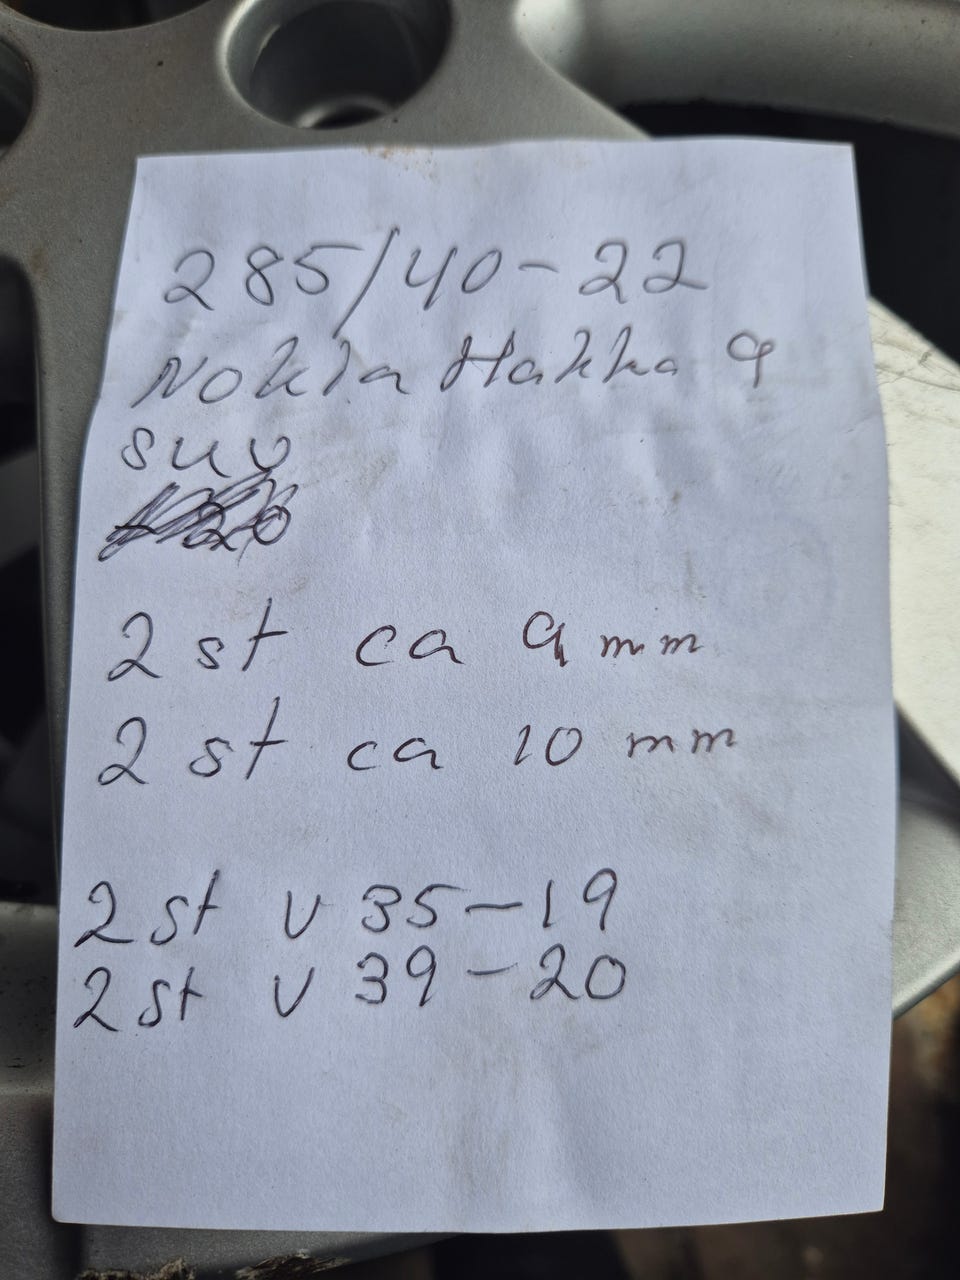 285/40-22
Nokia Hakka 9
suv
2 st ca 9 mm
2 st ca 10 mm
2 st v 35-19
2 st v 39-20